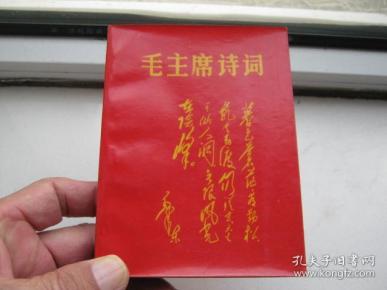 毛主席诗词
暮色苍茫看劲松
乱云飞渡仍从容天生
一个仙人洞无限风光
在险峰
毛泽东
孔夫子旧书网